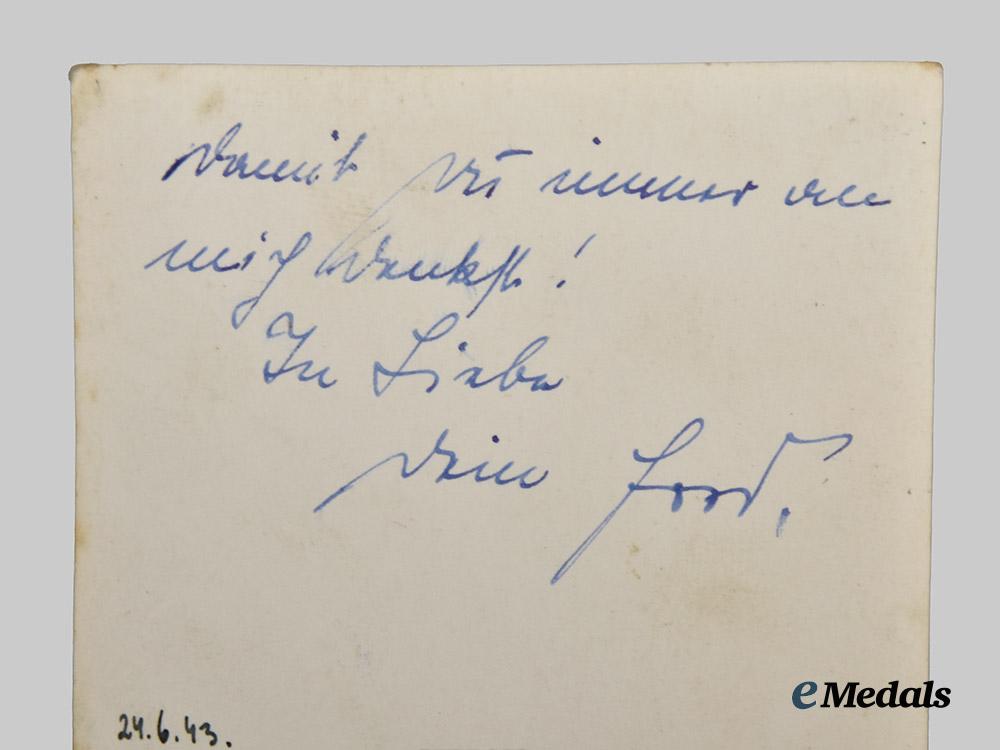 Damit Du immer an
mich denkst!
In Liebe
Dein
24.6.43.
eMedals